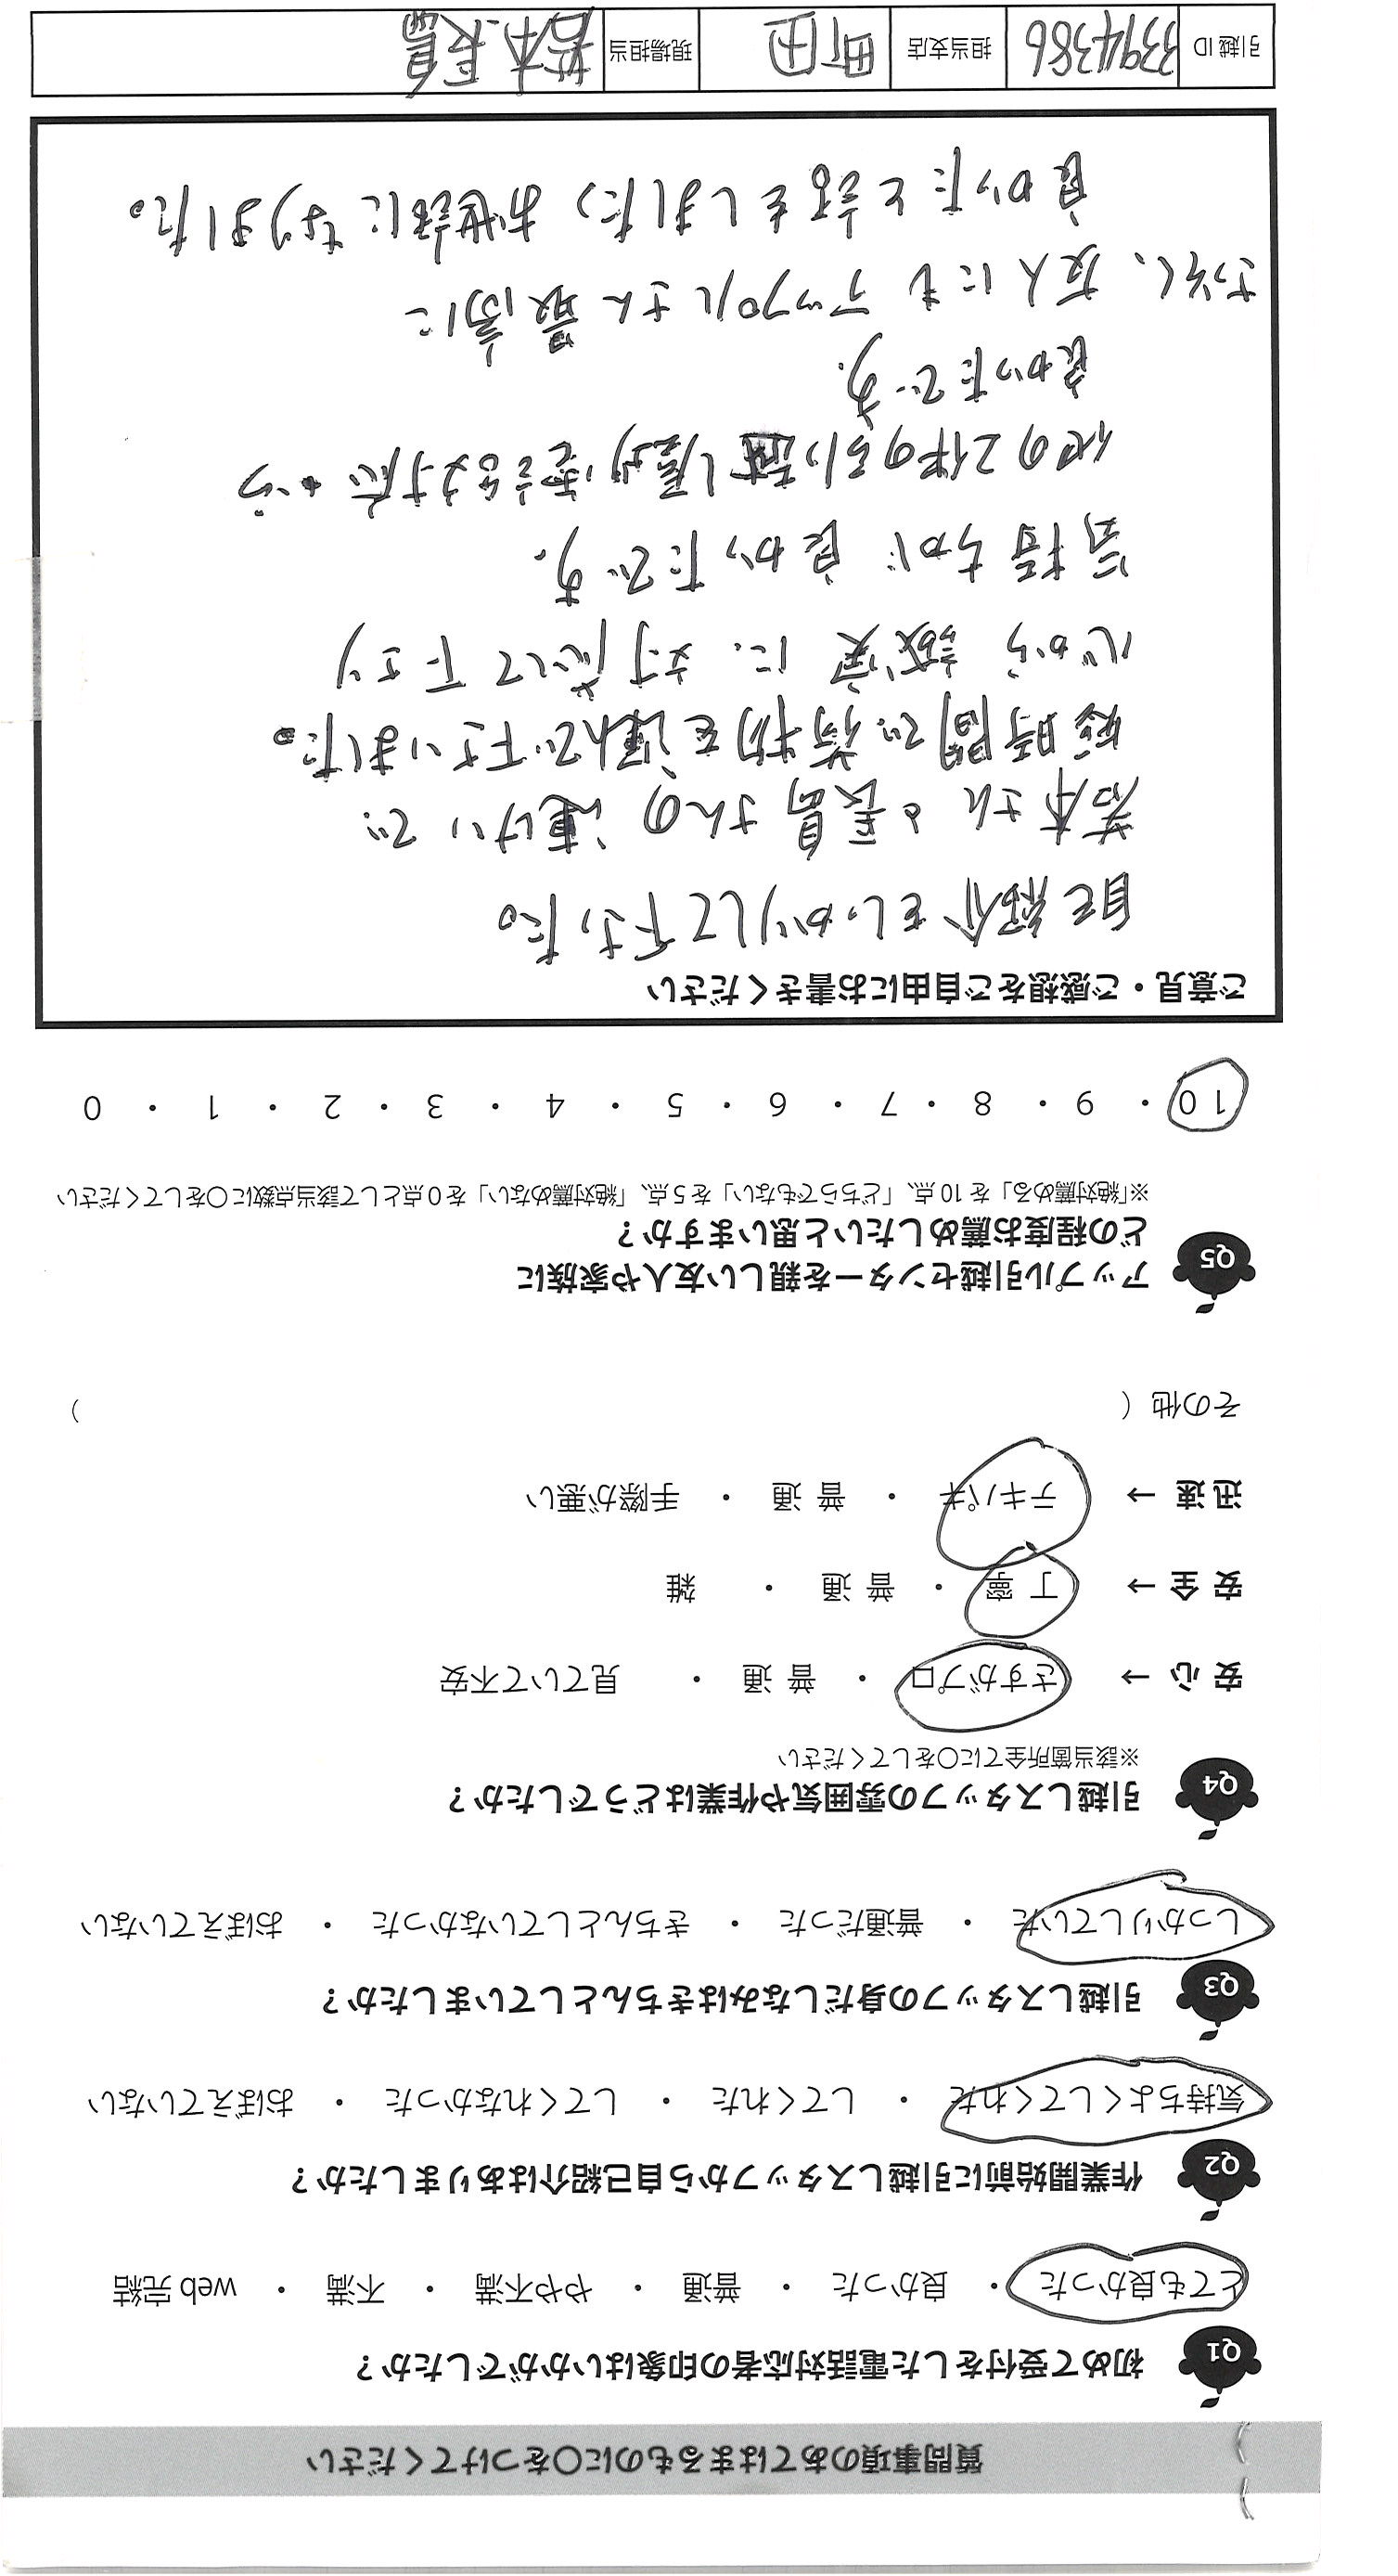 質問事項のあてはまるものに○をつけてください
Q1 初めて受付をした電話対応者の印象はいかがでしたか？
とても良かった ・ 良かった ・ 普通 ・ やや不満 ・ 不満 ・ web 完結
Q2 作業開始前に引越しスタッフから自己紹介はありましたか？
気持ちよくしてくれた ・ してくれた ・ してくれなかった ・ おぼえていない
Q3 引越しスタッフの身だしなみはきちんとしていましたか？
しっかりしていた ・ 普通だった ・ きちんとしていなかった ・ おぼえていない
Q4 引越しスタッフの雰囲気や作業はどうでしたか？
※該当箇所全てに○をしてください
安 心 → さすがプロ ・ 普 通 ・ 見ていて不安
安 全 → 丁 寧 ・ 普 通 ・ 雑
迅 速 → テキパキ ・ 普 通 ・ 手際が悪い
その他（ ）
Q5 アップル引越センターを親しい友人や家族に
どの程度お薦めしたいと思いますか？
※「絶対薦める」を 10 点、「どちらでもない」を 5 点、「絶対薦めない」を 0 点として該当点数に○をしてください
10 ・ 9 ・ 8 ・ 7 ・ 6 ・ 5 ・ 4 ・ 3 ・ 2 ・ 1 ・ 0
ご意見・ご感想をご自由にお書きください
自己紹介をしっかりして下さった。
若本さんと長島さんの連けいで
短時間で荷物を運んで下さいました。
心から誠実に、対応して下さり
気持ちが良かったです。
他の2件の引越し屋
良かったです。
さっそく、友人にもアップルさん最高に
良かったと話をしました お世話になりました。
引越 ID 3394386 担当支店 町田 現場担当 若本、長島